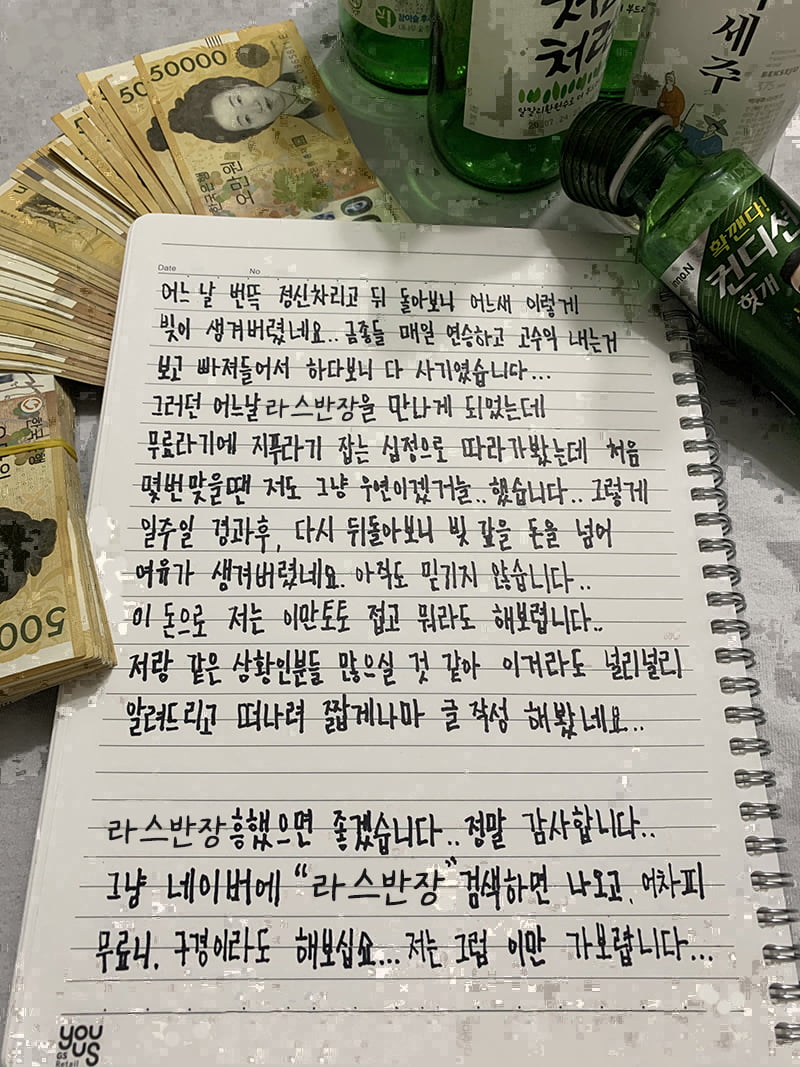 50000
처음
처럼
알칼리환원수로 더 부드
세
주
확깬다!
컨디션
헛개
inno.N
한국은행
오만원
500
Date No
어느 날 번뜩 정신차리고 뒤 돌아보니 어느새 이렇게
빚이 생겨버렸네요.. 금종들 매일 연승하고 고수익 내는거
보고 빠져들어서 하다보니 다 사기였습니다...
그러던 어느날 라스반장을 만나게 되었는데
무료라기에 지푸라기 잡는 심정으로 따라가봤는데 처음
몇번맞을땐 저도 그냥 우연이겠거늘..했습니다.. 그렇게
일주일 경과후, 다시 뒤돌아보니 빚 갚을 돈을 넘어
여유가 생겨버렸네요. 아직도 믿기지 않습니다..
이 돈으로 저는 이만토토 접고 뭐라도 해보렵니다..
저랑 같은 상황인분들 많으실 것 같아 이거라도 널리널리
알려드리고 떠나려 짧게나마 글 작성 해봤네요...
라스반장흥했으면 좋겠습니다..정말 감사합니다..
그냥 네이버에 “라스반장”검색하면 나오고, 어차피
무료니, 구경이라도 해보십쇼...저는 그럼 이만 가보렵니다...
you
us
GS
Retail